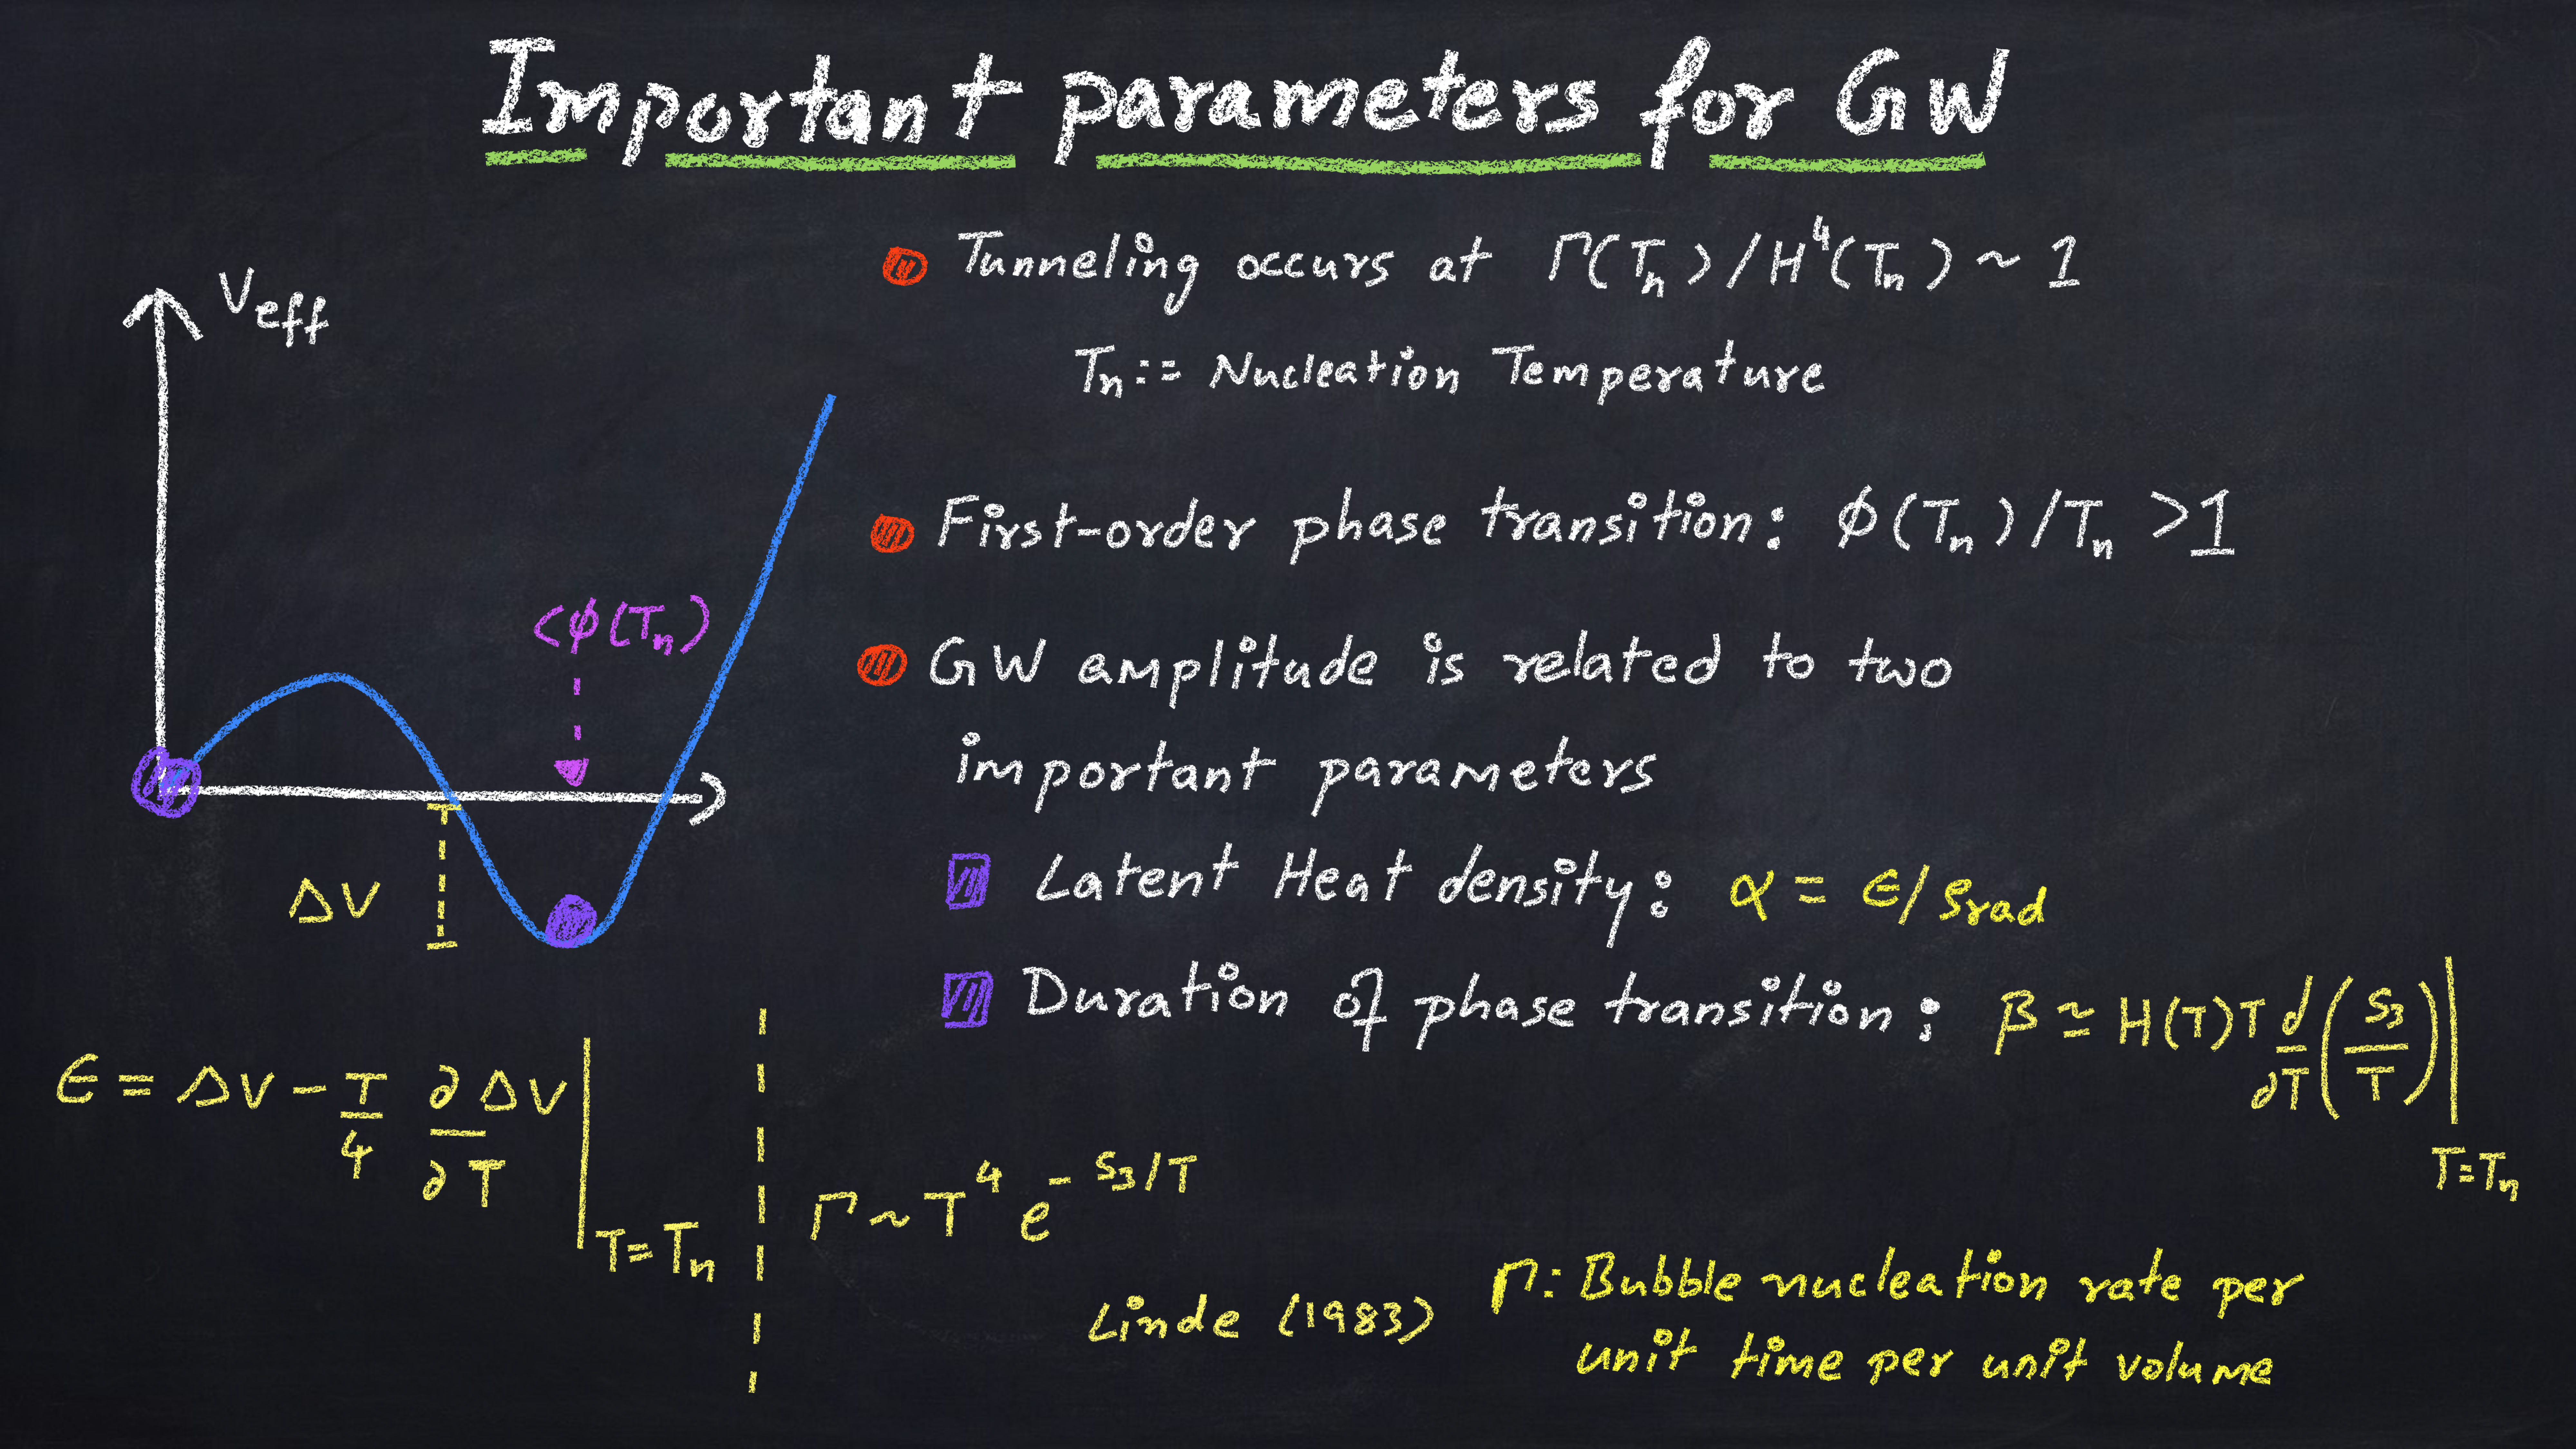 Important parameters for GW
Tunneling occurs at Γ(Tₙ)/H⁴(Tₙ) ~ 1
Tₙ := Nucleation Temperature
V_eff
First-order phase transition: ϕ(Tₙ)/Tₙ > 1
<ϕ(Tₙ)
GW amplitude is related to two
important parameters
Latent Heat density: α = ϵ/ρ_rad
ΔV
Duration of phase transition: β ≃ H(T) T d/dT (S₃/T)|_T=Tₙ
ϵ = ΔV - T/4 ∂ΔV/∂T |_T=Tₙ
Γ ~ T⁴ e^- S₃/T
Linde (1983)
Γ: Bubble nucleation rate per
unit time per unit volume